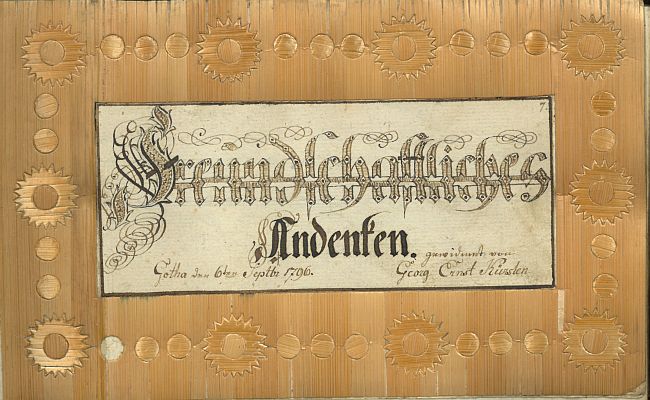 7.
Freundschaftliches
Andenken.
gewidmet von
Gotha den 6ten Septbr 1796. Georg Ernst Kürsten